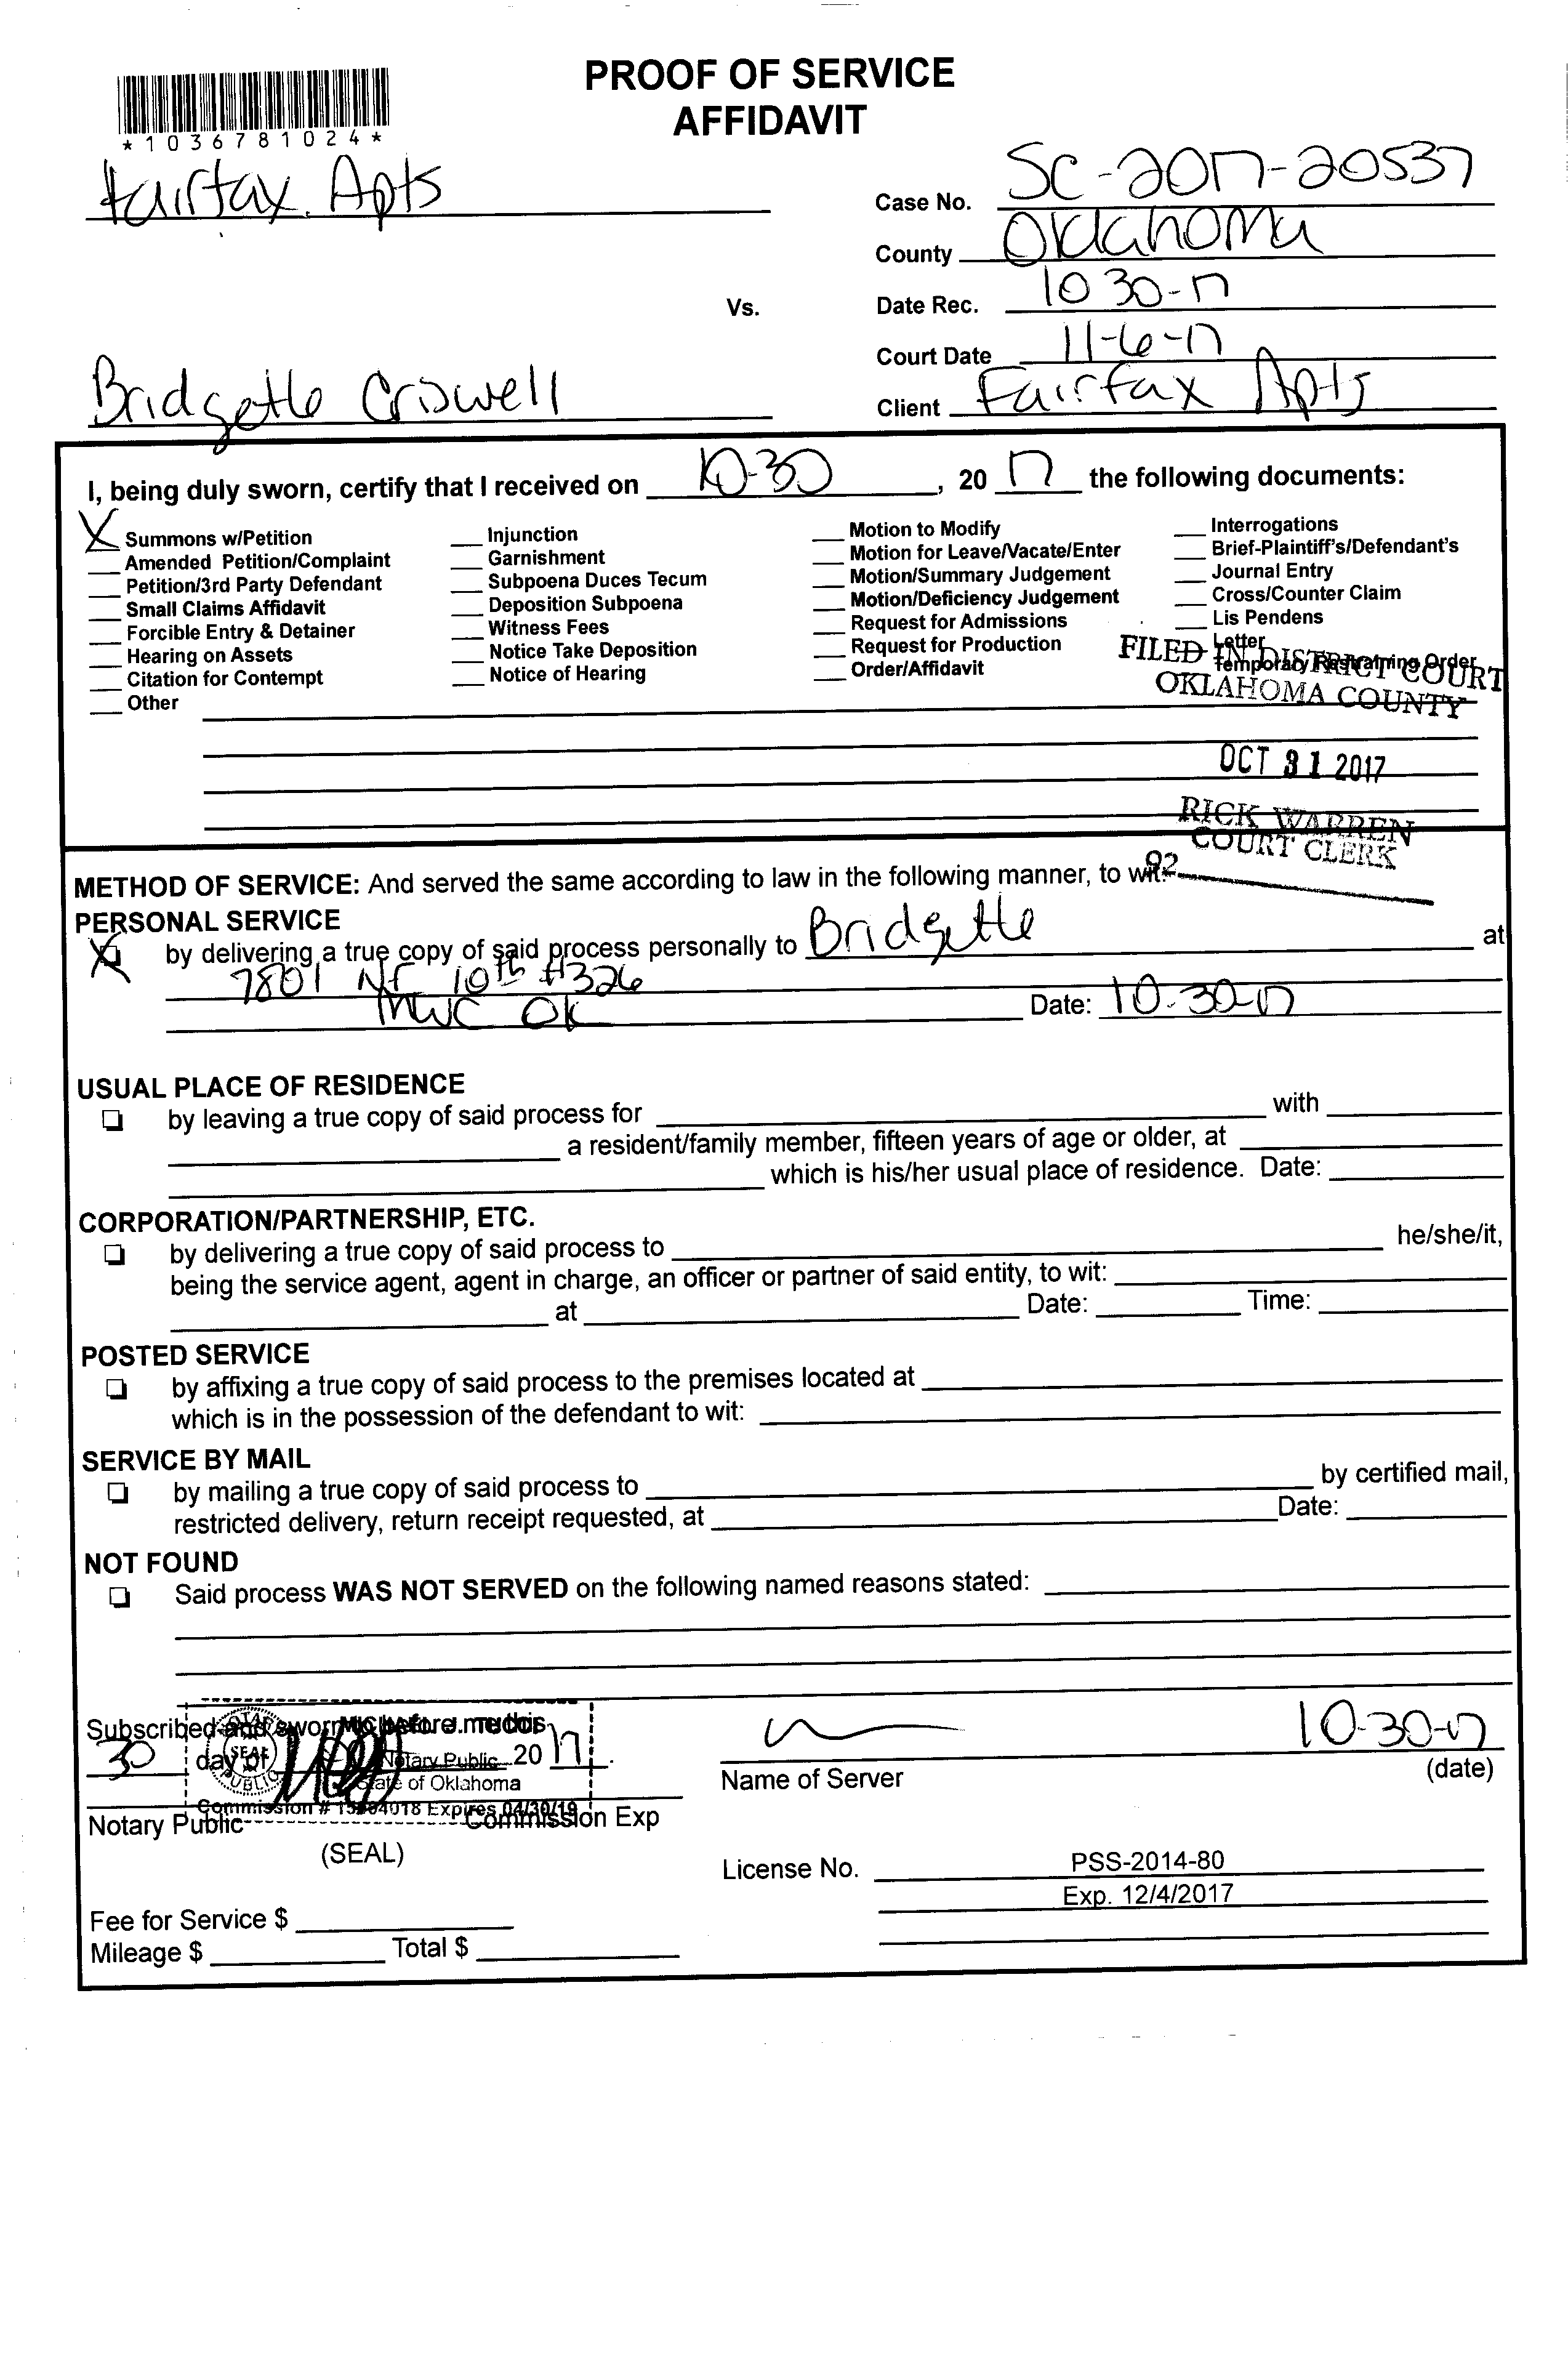 PROOF OF SERVICE
AFFIDAVIT
*1036781024*
Fairfax Apts
Case No. SC-2017-20537
County Oklahoma
Date Rec. 10 30-17
Vs.
Court Date 11-6-17
Bridgette Criswell
Client Fairfax Apts
I, being duly sworn, certify that I received on 10-30, 20 17 the following documents:
X Summons w/Petition
Amended Petition/Complaint
Petition/3rd Party Defendant
Small Claims Affidavit
Forcible Entry & Detainer
Hearing on Assets
Citation for Contempt
Other
Injunction
Garnishment
Subpoena Duces Tecum
Deposition Subpoena
Witness Fees
Notice Take Deposition
Notice of Hearing
Motion to Modify
Motion for Leave/Vacate/Enter
Motion/Summary Judgement
Motion/Deficiency Judgement
Request for Admissions
Request for Production
Order/Affidavit
Interrogations
Brief-Plaintiff's/Defendant's
Journal Entry
Cross/Counter Claim
Lis Pendens
Letter
Temporary Restraining Order
FILED IN DISTRICT COURT
OKLAHOMA COUNTY
OCT 31 2017
RICK WARREN
COURT CLERK
92
METHOD OF SERVICE: And served the same according to law in the following manner, to wit:
PERSONAL SERVICE
X by delivering a true copy of said process personally to Bridgette at
7801 NE 10th #326
MWC OK Date: 10-30-17
USUAL PLACE OF RESIDENCE
by leaving a true copy of said process for with
a resident/family member, fifteen years of age or older, at
which is his/her usual place of residence. Date:
CORPORATION/PARTNERSHIP, ETC.
by delivering a true copy of said process to he/she/it,
being the service agent, agent in charge, an officer or partner of said entity, to wit:
at Date: Time:
POSTED SERVICE
by affixing a true copy of said process to the premises located at
which is in the possession of the defendant to wit:
SERVICE BY MAIL
by mailing a true copy of said process to by certified mail,
restricted delivery, return receipt requested, at Date:
NOT FOUND
Said process WAS NOT SERVED on the following named reasons stated:
Subscribed and sworn to before me this
30 day of 20 17.
NOTARY PUBLIC
SEAL
Notary Public
State of Oklahoma
Expires 04/30/19
10-30-17
Name of Server (date)
Notary Public Commission Exp
(SEAL)
License No. PSS-2014-80
Exp. 12/4/2017
Fee for Service $
Mileage $ Total $